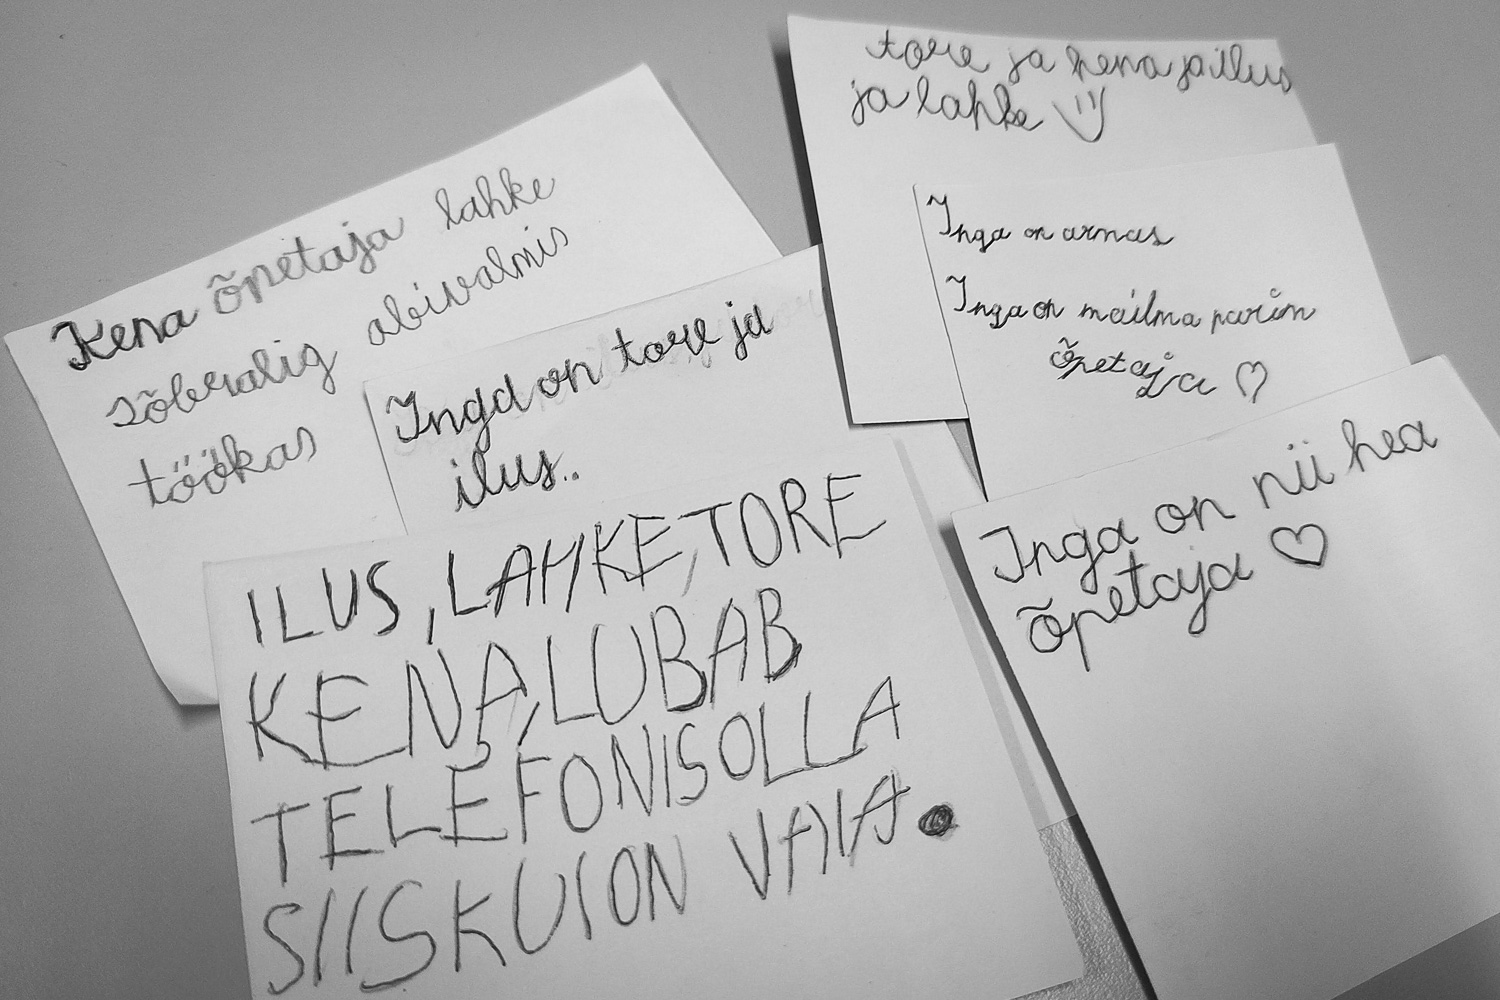 tore ja kena ja ilus
ja lahke
Kena õpetaja lahke
sõbralig abivalmis
töökas
Inga on armas
Inga on mailma parim
õpetaja ♡
Inga on tore ja
ilus..
Inga on nii hea
õpetaja ♡
ILUS, LAHKE, TORE
KENA, LUBAB
TELEFONIS OLLA
SIIS KUI ON VAJA.